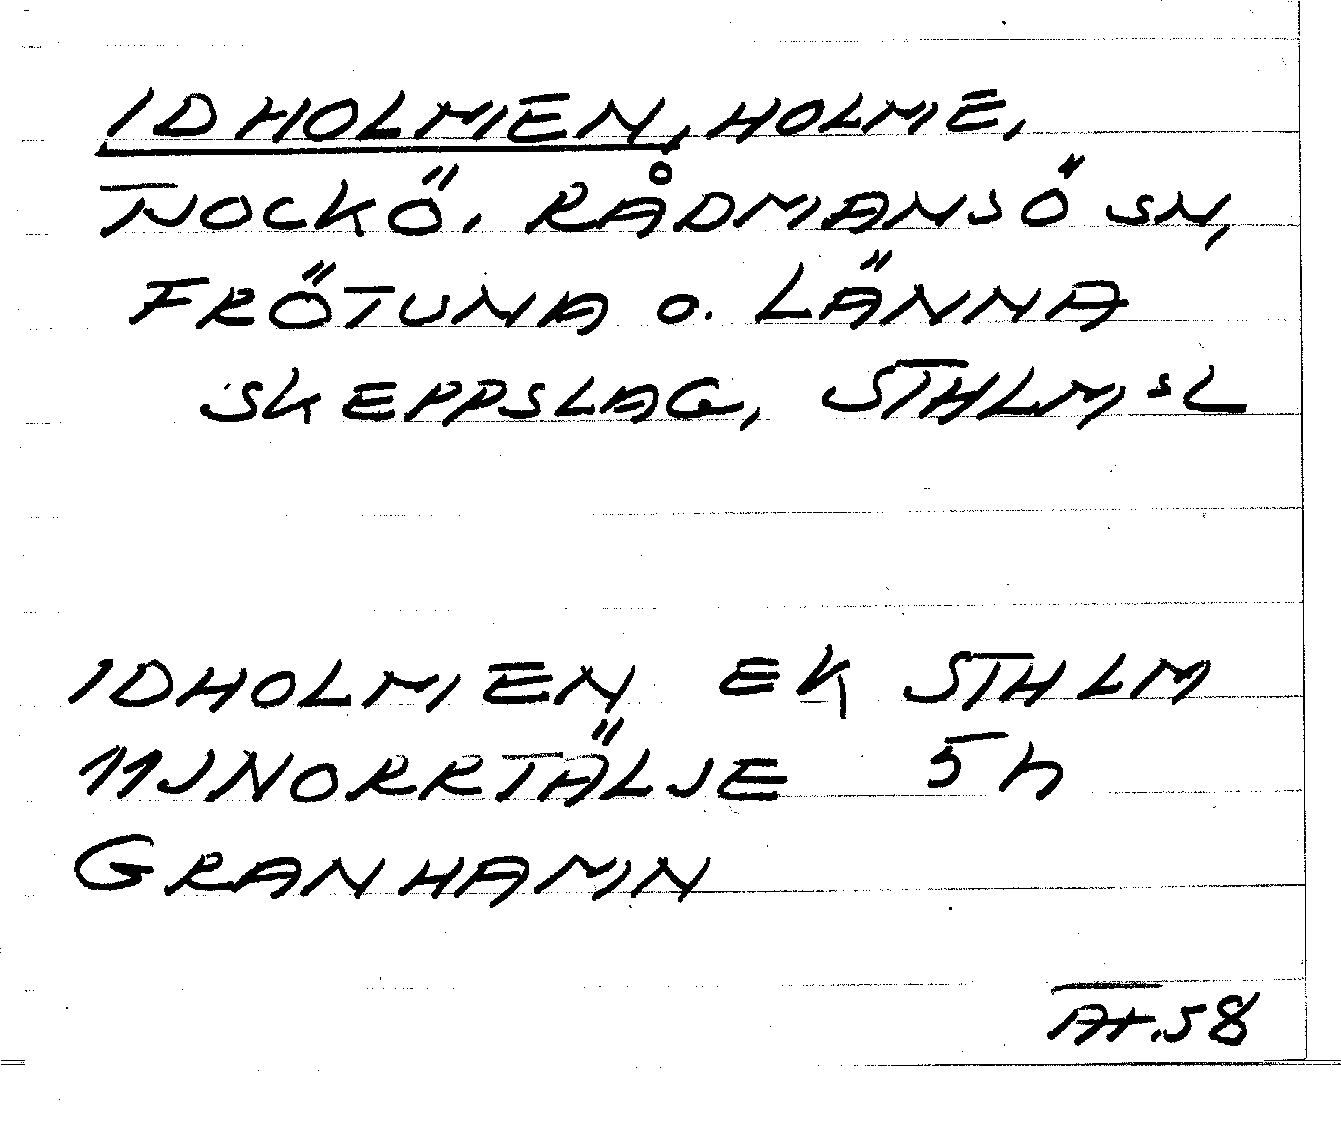 IDHOLMEN, HOLME,
TJOCKÖ, RÅDMANSÖ SN,
FRÖTUNA O. LÄNNA
SKEPPSLAG, STHLMSL
IDHOLMEN EK STHLM
11J NORRTÄLJE 5h
GRANHAMN